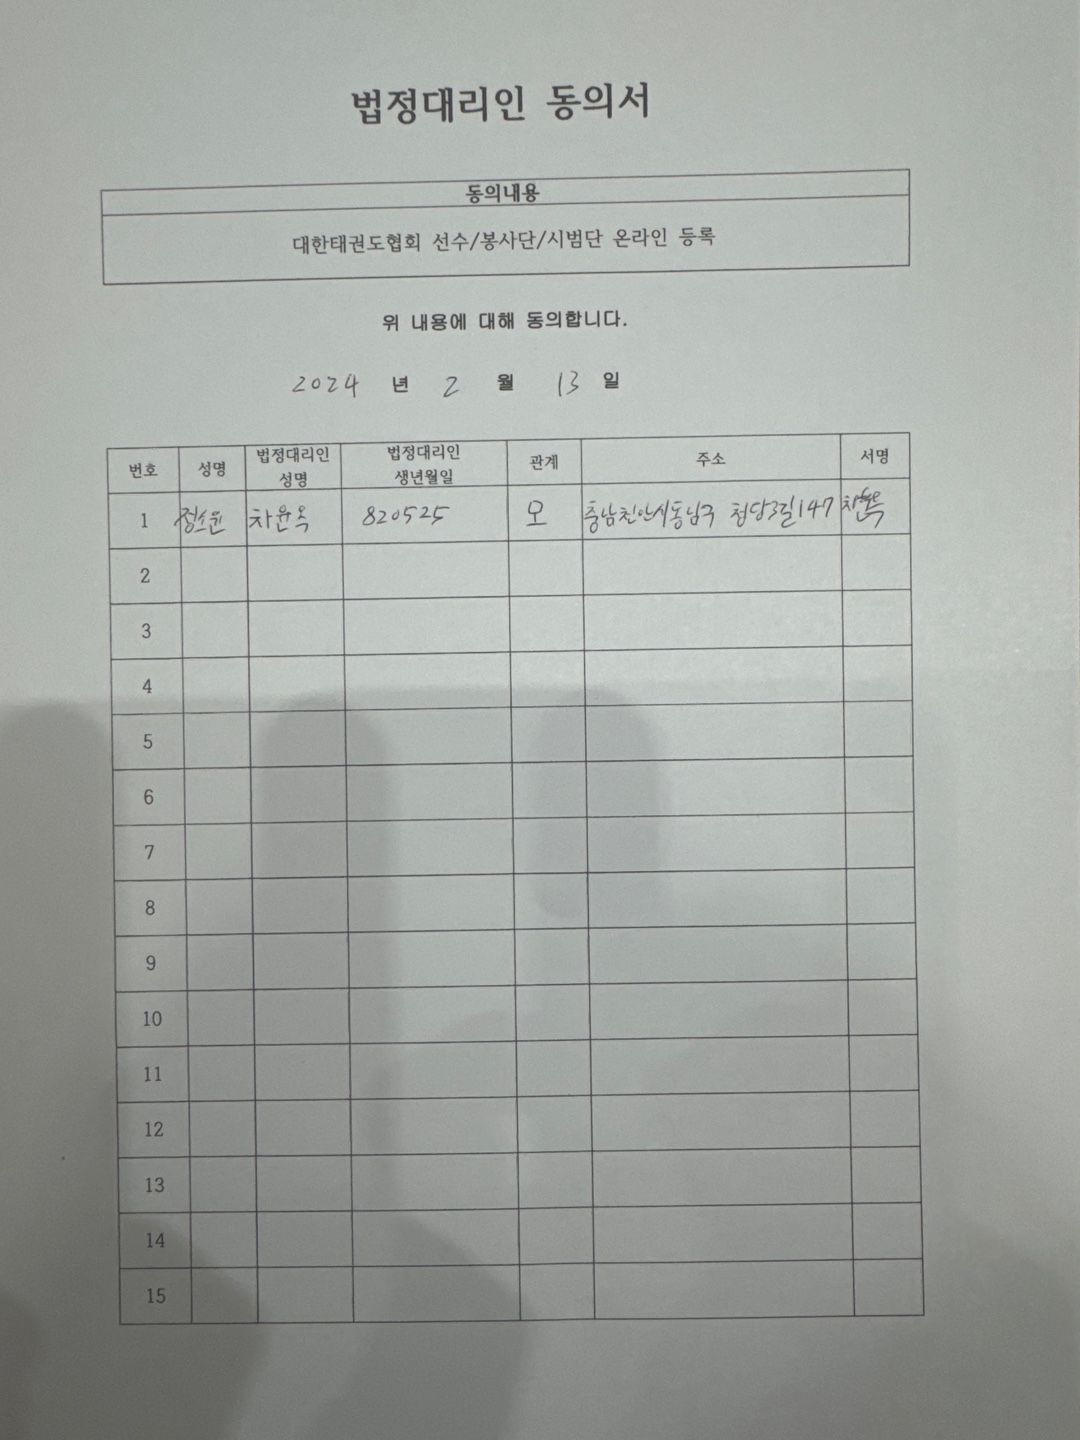 법정대리인 동의서
동의내용
대한태권도협회 선수/봉사단/시범단 온라인 등록
위 내용에 대해 동의합니다.
2024 년 2 월 13 일
번호 성명 법정대리인 성명 법정대리인 생년월일 관계 주소 서명
1 정소윤 차윤옥 820525 모 충남천안시동남구 청당3길147
2
3
4
5
6
7
8
9
10
11
12
13
14
15